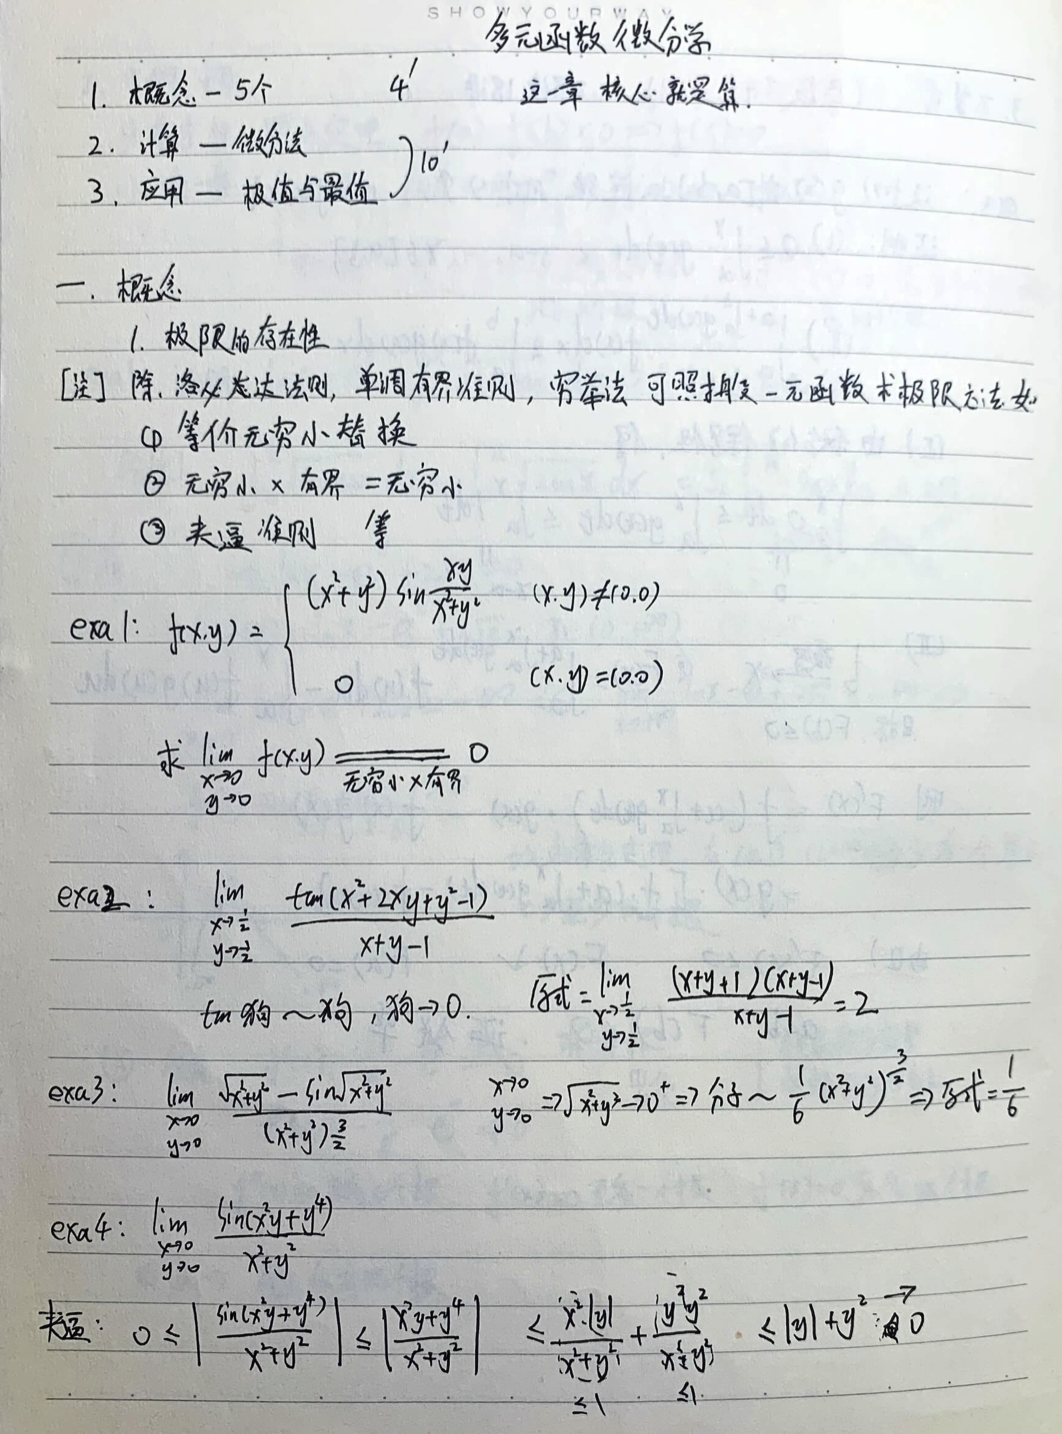 SHOWYOURWAY
多元函数微分学
1. 概念 — 5个 4' 这一章 核心就是算.
2. 计算 — 微分法
3. 应用 — 极值与最值 10'
一. 概念
1. 极限的存在性
[注] 除. 洛必达法则, 单调有界准则, 穷举法 可照搬一元函数求极限方法如
① 等价无穷小替换
② 无穷小 × 有界 = 无穷小
③ 夹逼准则 等
exa1: f(x.y) = { (x²+y²) sin xy/(x²+y²) (x.y)≠(0.0)
0 (x.y)=(0.0)
求 lim x→0 y→0 f(x.y) ==== 无穷小×有界 0
exa2: lim x→1/2 y→1/2 tan(x²+2xy+y²-1)/(x+y-1)
tan狗 ~ 狗, 狗→0. 原式 = lim x→1/2 y→1/2 (x+y+1)(x+y-1)/(x+y-1) = 2
exa3: lim x→0 y→0 (√(x²+y²) - sin√(x²+y²))/(x²+y²)^(3/2) x→0 y→0 ⇒ √(x²+y²)→0⁺ ⇒ 分子 ~ 1/6 (x²+y²)^(3/2) ⇒ 原式 = 1/6
exa4: lim x→0 y→0 sin(x²y+y⁴)/(x²+y²)
夹逼: 0 ≤ |sin(x²y+y⁴)/(x²+y²)| ≤ |(x²y+y⁴)/(x²+y²)| ≤ x²·|y|/(x²+y²) + y²y²/(x²+y²) ≤ |y|+y² → 0
≤1 ≤1